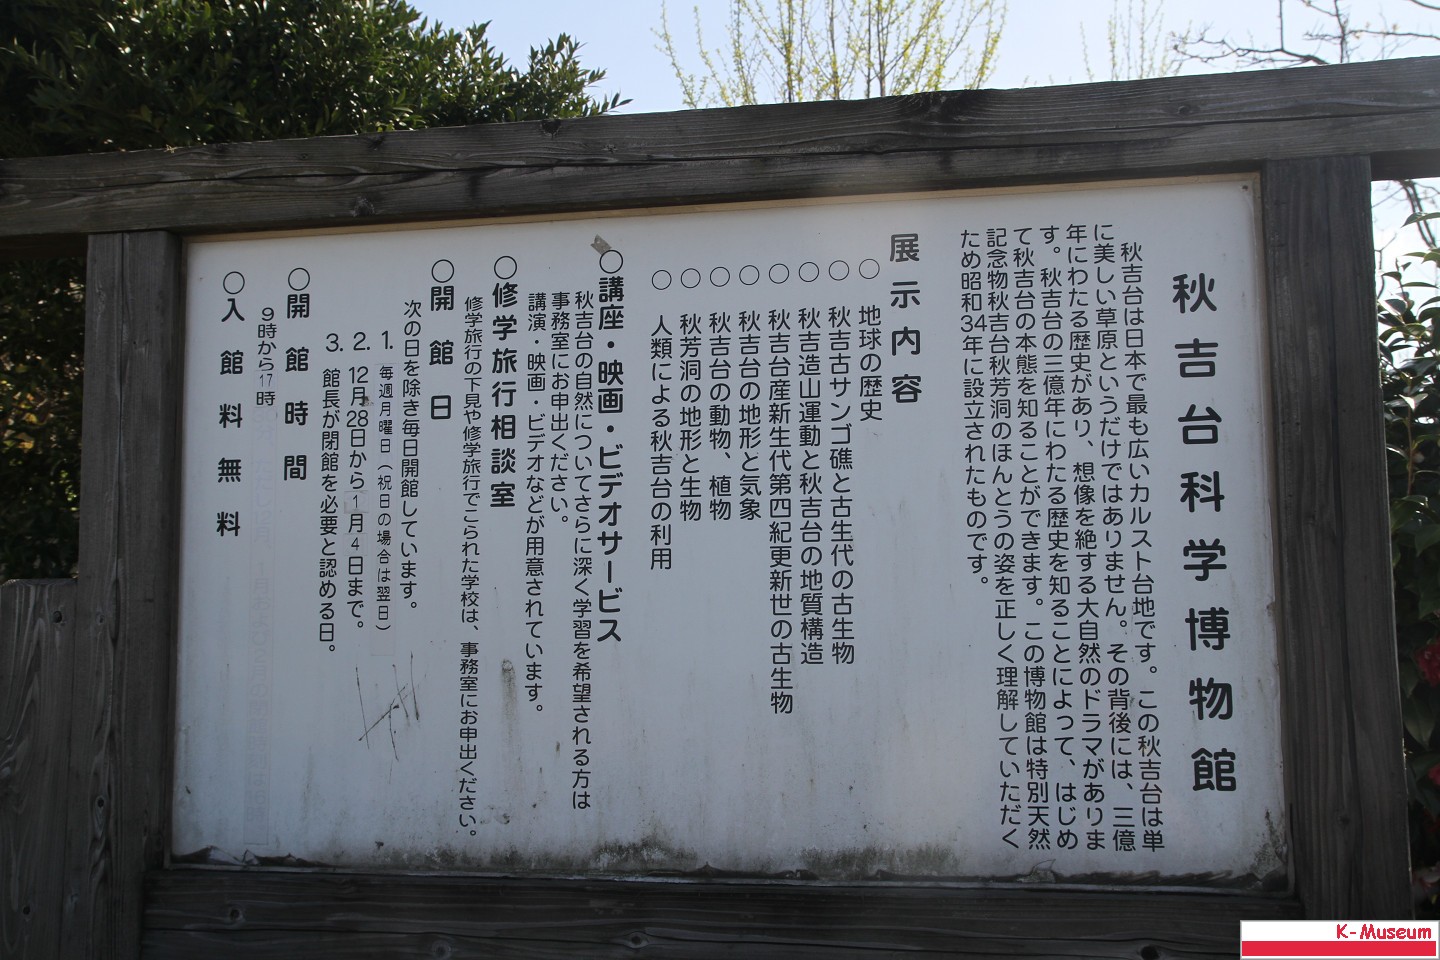 秋吉台科学博物館
秋吉台は日本で最も広いカルスト台地です。この秋吉台は単
に美しい草原というだけではありません。その背後には、三億
年にわたる歴史があり、想像を絶する大自然のドラマがありま
す。秋吉台の三億年にわたる歴史を知ることによって、はじめ
て秋吉台の本態を知ることができます。この博物館は特別天然
記念物秋吉台秋芳洞のほんとうの姿を正しく理解していただく
ため昭和34年に設立されたものです。
展示内容
○ 地球の歴史
○ 秋吉古サンゴ礁と古生代の古生物
○ 秋吉造山運動と秋吉台の地質構造
○ 秋吉台産新生代第四紀更新世の古生物
○ 秋吉台の地形と気象
○ 秋吉台の動物、植物
○ 秋芳洞の地形と生物
○ 人類による秋吉台の利用
○講座・映画・ビデオサービス
秋吉台の自然についてさらに深く学習を希望される方は
事務室にお申出ください。
講演・映画・ビデオなどが用意されています。
○修学旅行相談室
修学旅行の下見や修学旅行でこられた学校は、事務室にお申出ください。
○開館日
次の日を除き毎日開館しています。
1. 毎週月曜日(祝日の場合は翌日)
2. 12月28日から1月4日まで。
3. 館長が閉館を必要と認める日。
○開館時間
9時から17時
○入館料無料
K-Museum